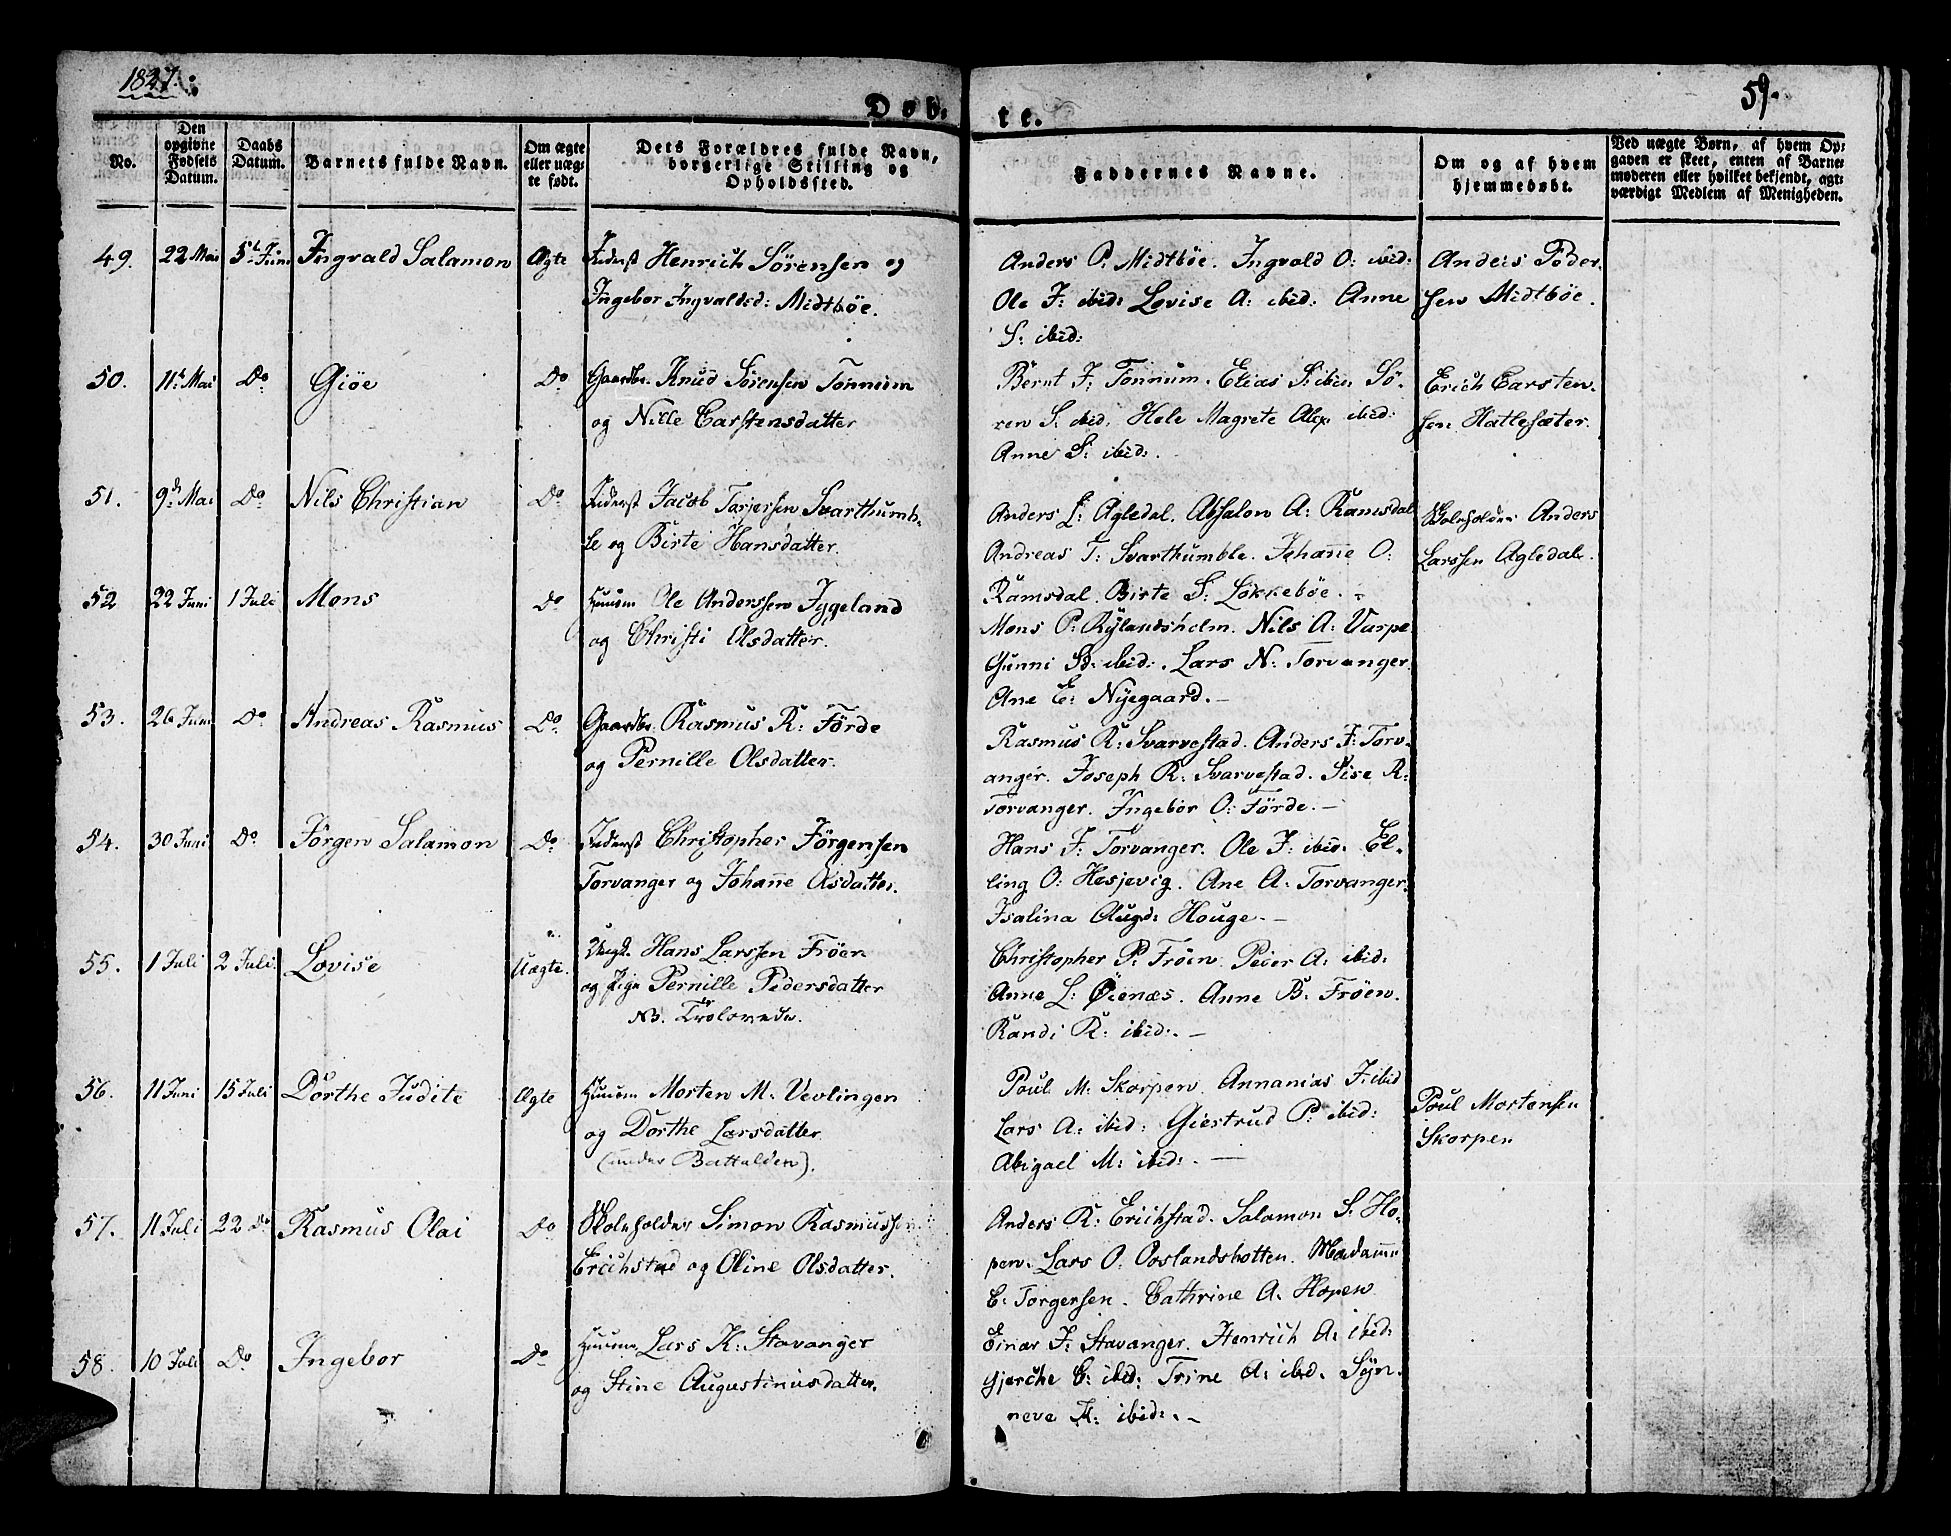 1827.
59.
Døb-
te.
No.
Den opgivne Fødsels Datum.
Daabs Datum.
Barnets fulde Navn.
Om ægte eller uægte født.
Dets Forældres fulde Navn, borgerlige Stilling og Opholdssted.
Faddernes Navne.
Om og af hvem hjemmedøbt.
Ved uægte Børn, af hvem Opgaven er skeet, enten af Barnemoderen eller hvilket bekjendt, agtværdigt Medlem af Menigheden.
49. 22 Mai 5t Juni Ingvald Salamon Ægte Inderst Henrich Sörensen og
Ingebor Ingvaldsd: Midtböe.
Anders P: Midtböe. Ingvald O: ibid:
Ole J: ibid: Lovise A: ibid: Anne
S: ibid:
Anders Peder-
sen Midtböe.
50. 11t Mai Do Giöe Do Gaardbr. Knud Sörensen Tonnum
og Nille Carstensdatter
Bernt J: Tonnum. Elias S: ibid: Sö-
ren S. ibid. Hele Magrete Alex. ibid:
Anne S: ibid:.
Erich Carsten-
sen Hatlesæter.
51. 9de Mai Do Nils Christian Do Inderst Jacob Torjersen Svarthumb-
le og Birte Hansdatter.
Anders L: Agledal. Absalon A: Ramsdal
Andreas T: Svarthumble. Johanne O:
Ramsdal. Birte S: Lökkeböe. -
Skoleholder Anders
Larssen Agledal.
52 22 Juni 1 Juli Mons Do Huusm Ole Anderssen Yggeland
og Christi Olsdatter.
Mons P: Rylandsholm. Nils A: Varpe
Gunni Sd: ibid:. Lars N: Torvanger.
Ane E: Nyegaard. -
53. 26 Juni Do Andreas Rasmus Do Gaardbr. Rasmus R: Förde
og Pernille Olsdatter.
Rasmus R: Svarvestad. Anders J: Torv-
anger. Joseph R: Svarvestad. Sise R:
Torvanger. Ingebor O: Förde. -
54. 30 Juni Do Jörgen Salamon Do Inderst Christopher Jörgensen
Torvanger og Johanne Olsdatter.
Hans J: Torvanger. Ole J: ibid: El-
ling O: Hesjevig. Ane A: Torvanger.
Isalina Augd: Houge. -
55. 1 Juli 2 Juli. Lovise Uægte. Ungk. Hans Larssen Fröen
og Pige Pernille Pedersdatter
NB. Trolovede.
Christopher P: Fröen. Peder A: ibid:
Anne L: Öienæs. Anne B: Fröen.
Randi R: ibid:. -
56. 11 Juni 15 Juli Dorthe Judite Ægte Huusm Morten M: Vevlingen
og Dorthe Larsdatter.
(under Battalden).
Poul M: Skorpen. Annanias J: ibid
Lars A: ibid: Giertrud P: ibid:
Abigael M: ibid:. -
Poul Mortensen
Skorpen
57. 11 Juli 22 Do Rasmus Olai Do Skoleholder Simon Rasmussen
Erichstad og Oline Olsdatter.
Anders R: Erichstad. Salamon S: Ho-
pen. Lars O: Oslandsbotten. Madamme
E: Torgersen. Cathrine A: Hopen
58. 10 Juli Do Ingebor Do Huusm Lars K: Stavanger
og Stine Augustinusdatter.
Einar J: Stavanger. Henrich A: ibid:
Gjerche E: ibid: Trine A: ibid. Syn-
neve K: ibid:. -